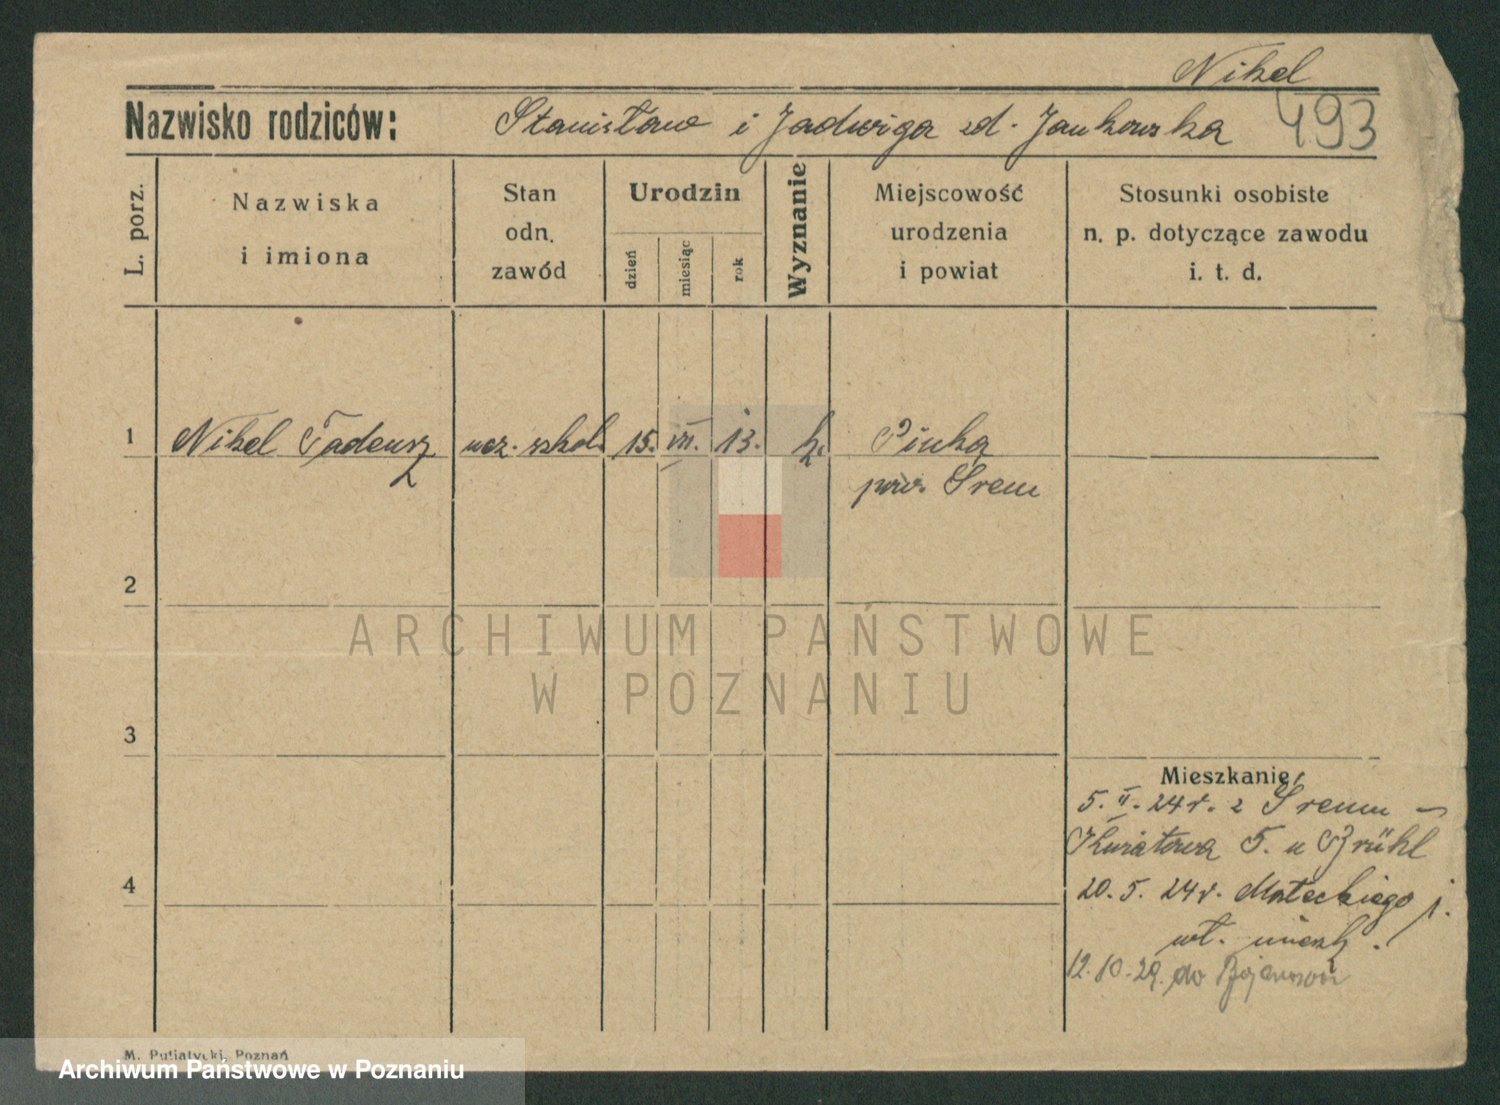 Nikel
Nazwisko rodziców: Stanisław i Jadwiga zd. Jankowska 493
L. porz.
Nazwiska
i imiona
Stan
odn.
zawód
Urodzin
dzień
miesiąc
rok
Wyznanie
Miejscowość
urodzenia
i powiat
Stosunki osobiste
n. p. dotyczące zawodu
i. t. d.
1 Nikel Tadeusz ucz. szkol. 15. VII. 13. k. Pinka
pow. Śrem
2
3
4
Mieszkanie
5. II. 24 r. z Śremu –
Kwiatowa 5. u Brühl
20. 5. 24 r. Małeckiego
wł. mieszk.
12.10.29. do Bojanowa
M. Putiatycki, Poznań
ARCHIWUM PAŃSTWOWE
W POZNANIU
Archiwum Państwowe w Poznaniu